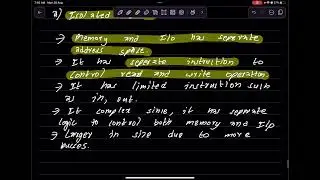 Isolated
→ Memory and I/O has seperate
address space.
→ It has seperate instruction to
control read and write operation.
→ It has limited instruction such
as in, out.
→ It complex since, it has seperate
logic to control both memory and I/O
→ Larger in size due to more
buses.